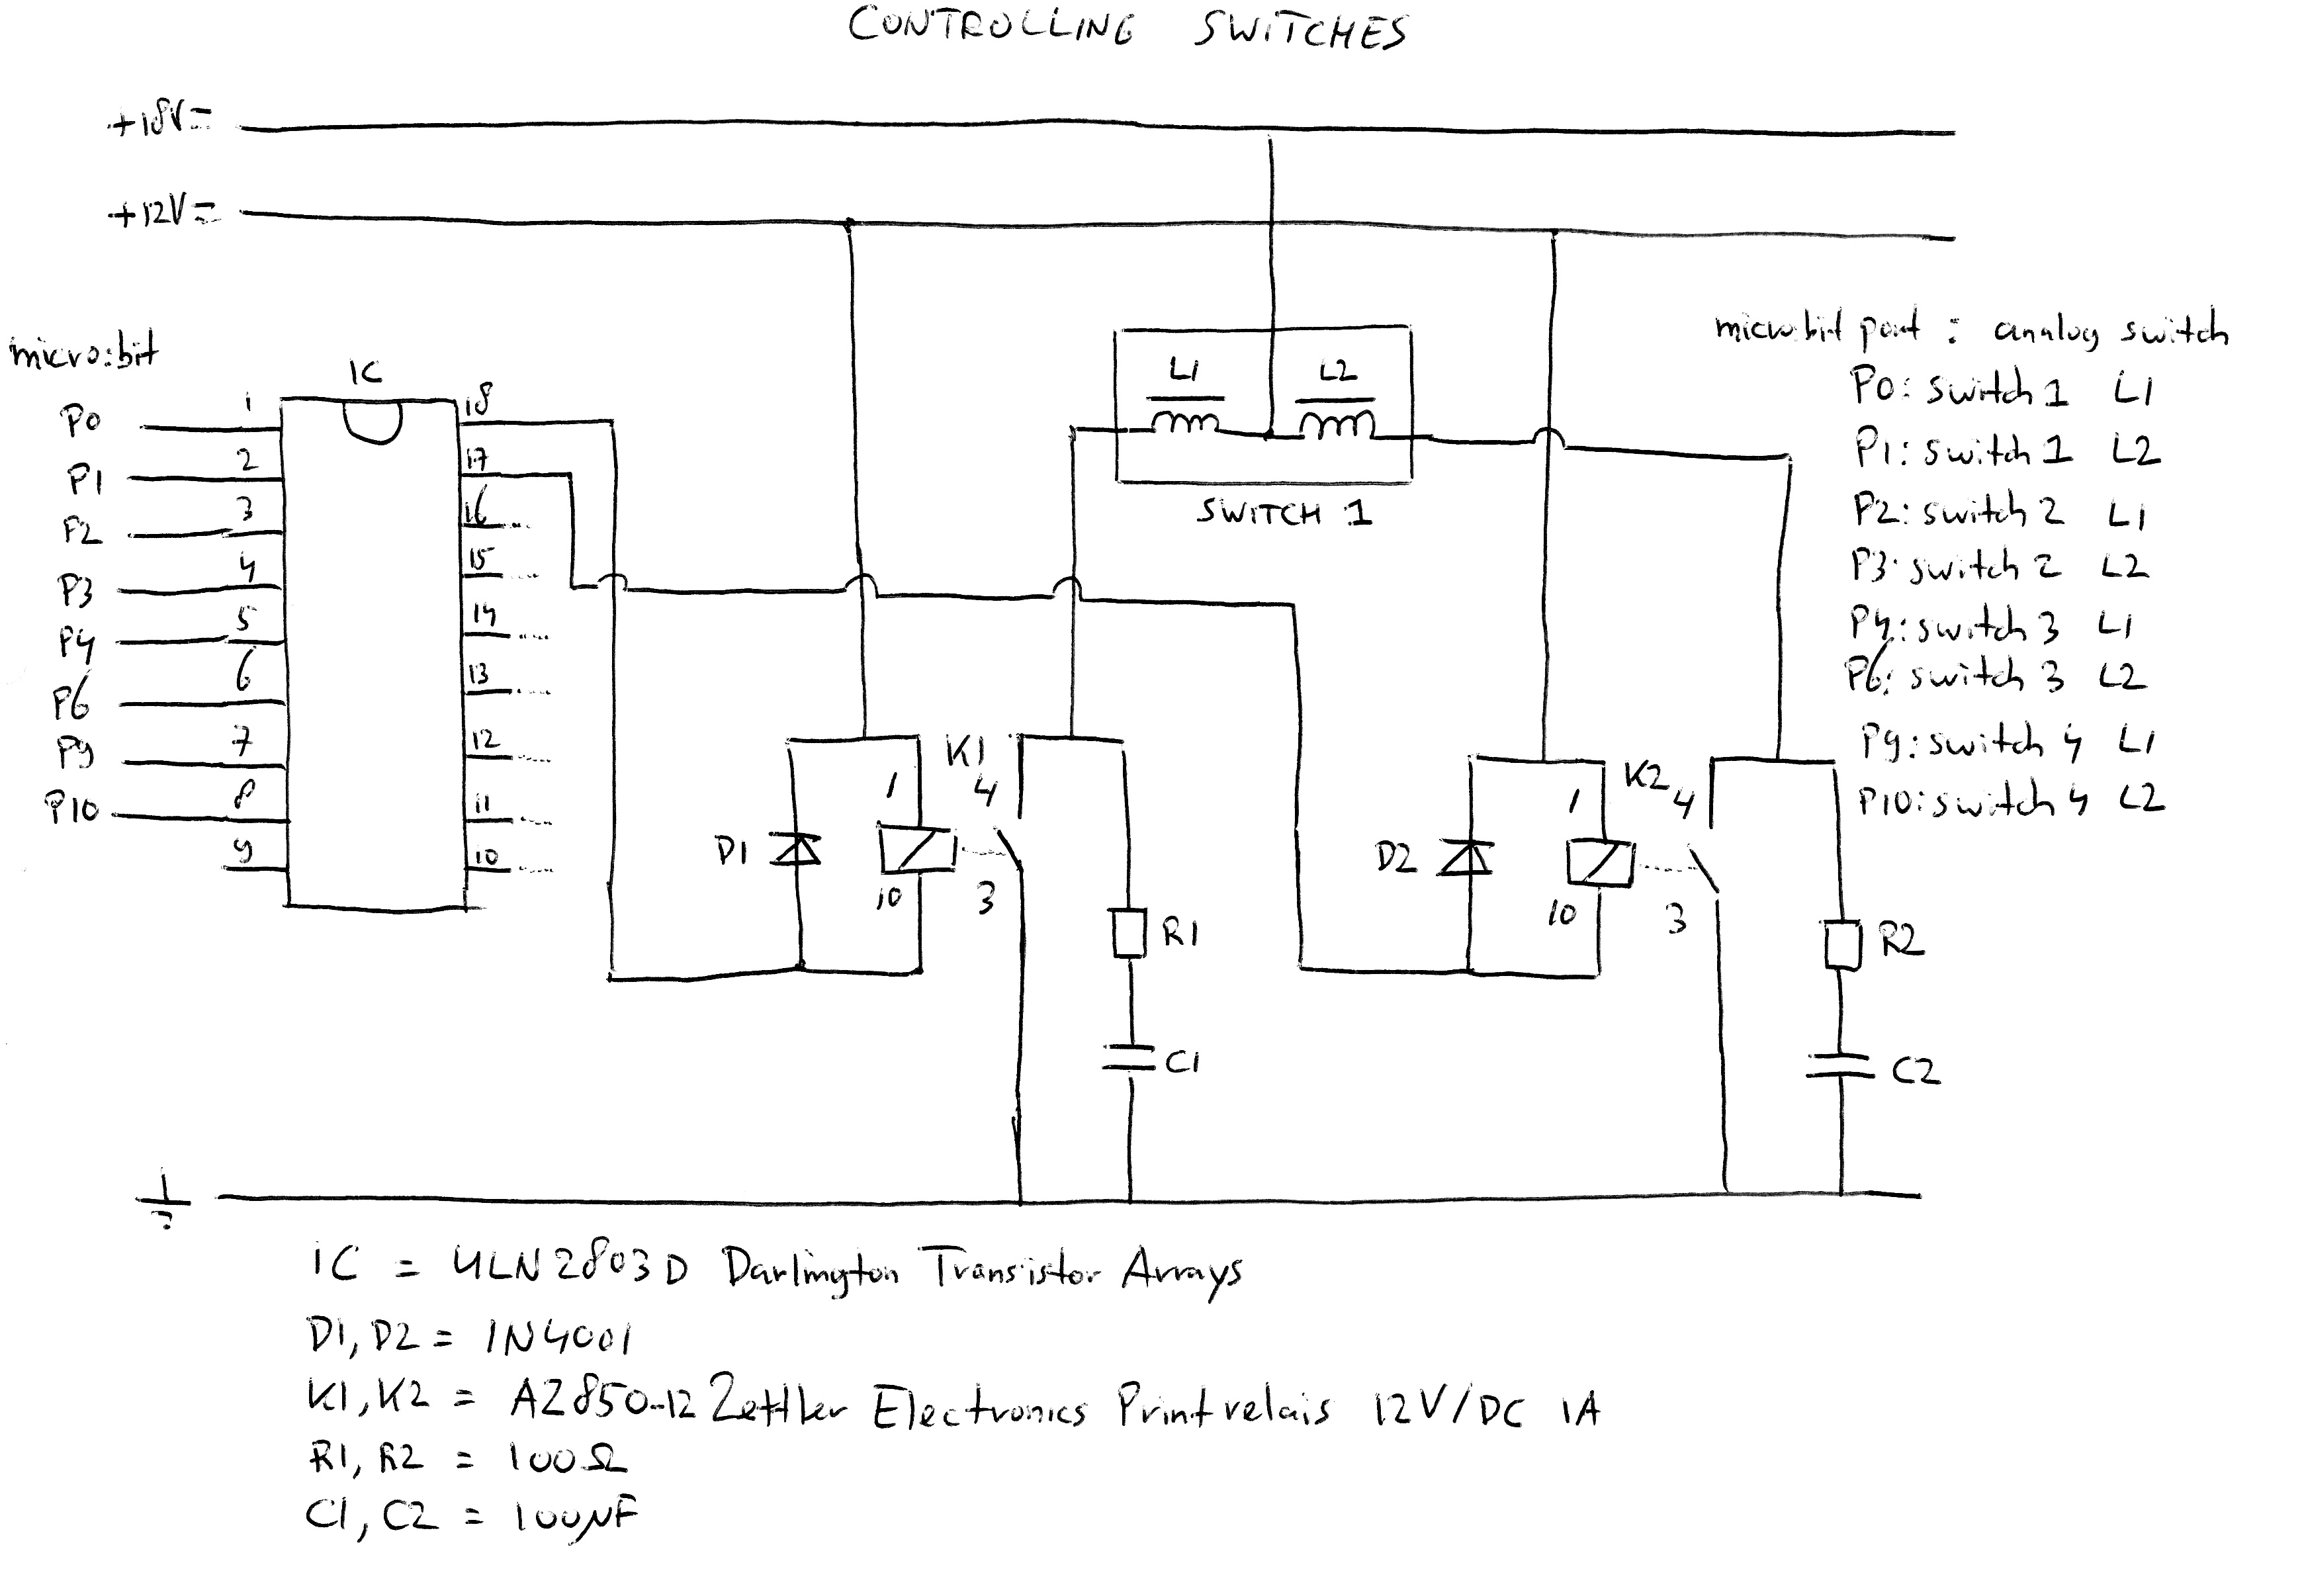 CONTROLLING SWITCHES
+18V=
+12V=
micro:bit
IC
P0 1
P1 2
P2 3
P3 4
P4 5
P6 6
P9 7
P10 8
9
18
17
16
15
14
13
12
11
10
L1 L2
SWITCH 1
D1
1
10
K1
4
3
R1
C1
D2
1
10
K2
4
3
R2
C2
micro:bit port : analog switch
P0: switch 1 L1
P1: switch 1 L2
P2: switch 2 L1
P3: switch 2 L2
P4: switch 3 L1
P6: switch 3 L2
P9: switch 4 L1
P10: switch 4 L2
IC = ULN2803D Darlington Transistor Arrays
D1, D2 = 1N4001
K1, K2 = AZ850-12 Zettler Electronics Printrelais 12V/DC 1A
R1, R2 = 100Ω
C1, C2 = 100µF